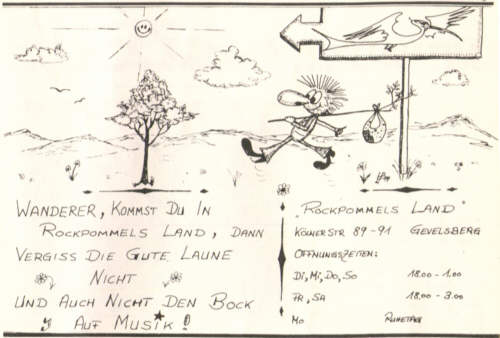 WANDERER, KOMMST DU IN
ROCKPOMMELS LAND, DANN
VERGISS DIE GUTE LAUNE
NICHT
UND AUCH NICHT DEN BOCK
AUF MUSIK!
"ROCKPOMMELS LAND"
KÖLNER STR 89-91 GEVELSBERG
ÖFFNUNGSZEITEN:
DI, MI, DO, SO 18.00 - 1.00
FR, SA 18.00 - 3.00
MO RUHETAG